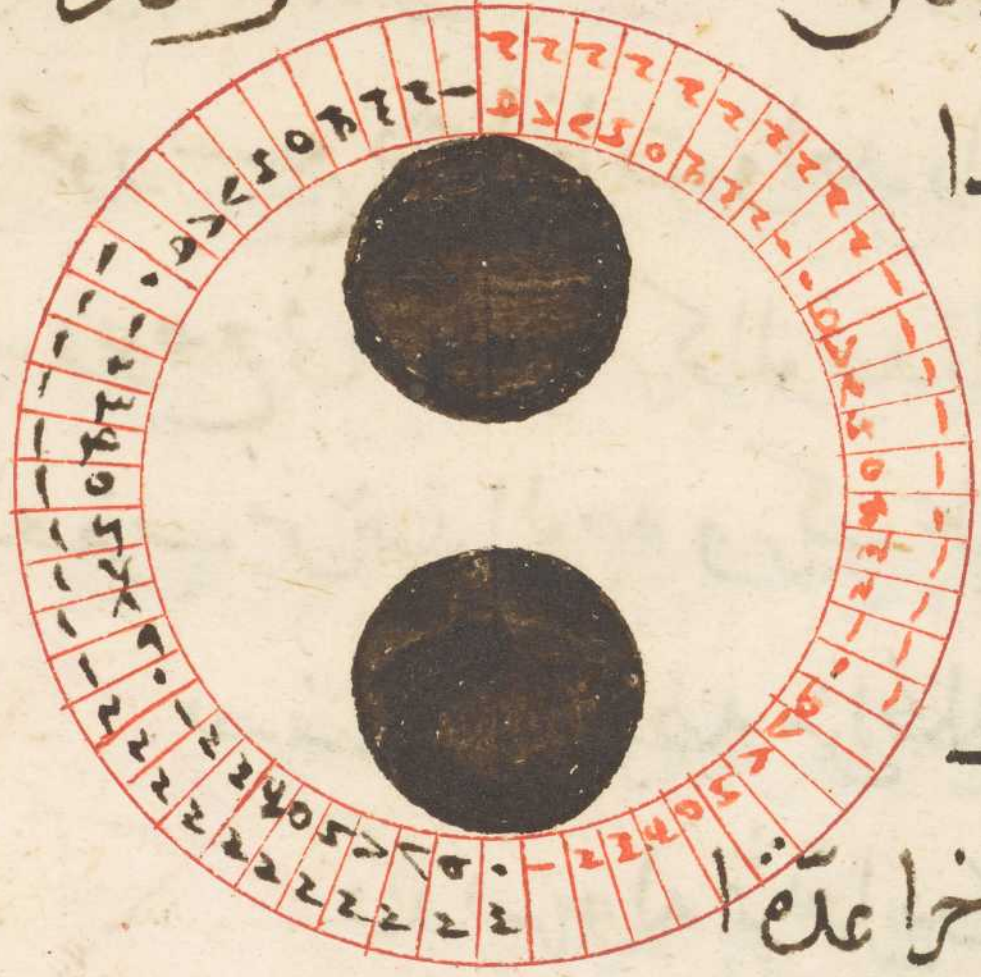 ١ ٢ ٣ ٤ ٥ ٦ ٧ ٨ ٩ ١٠ ١١ ١٢ ١٣ ١٤ ١٥ ١٦ ١٧ ١٨ ١٩ ٢٠ ٢١ ٢٢ ٢٣ ٢٤ ٢٥ ٢٦ ٢٧ ٢٨ ٢٩ ٣٠
١ ٢ ٣ ٤ ٥ ٦ ٧ ٨ ٩ ١٠ ١١ ١٢ ١٣ ١٤ ١٥ ١٦ ١٧ ١٨ ١٩ ٢٠ ٢١ ٢٢ ٢٣ ٢٤ ٢٥ ٢٦ ٢٧ ٢٨ ٢٩
خرا عدة ا